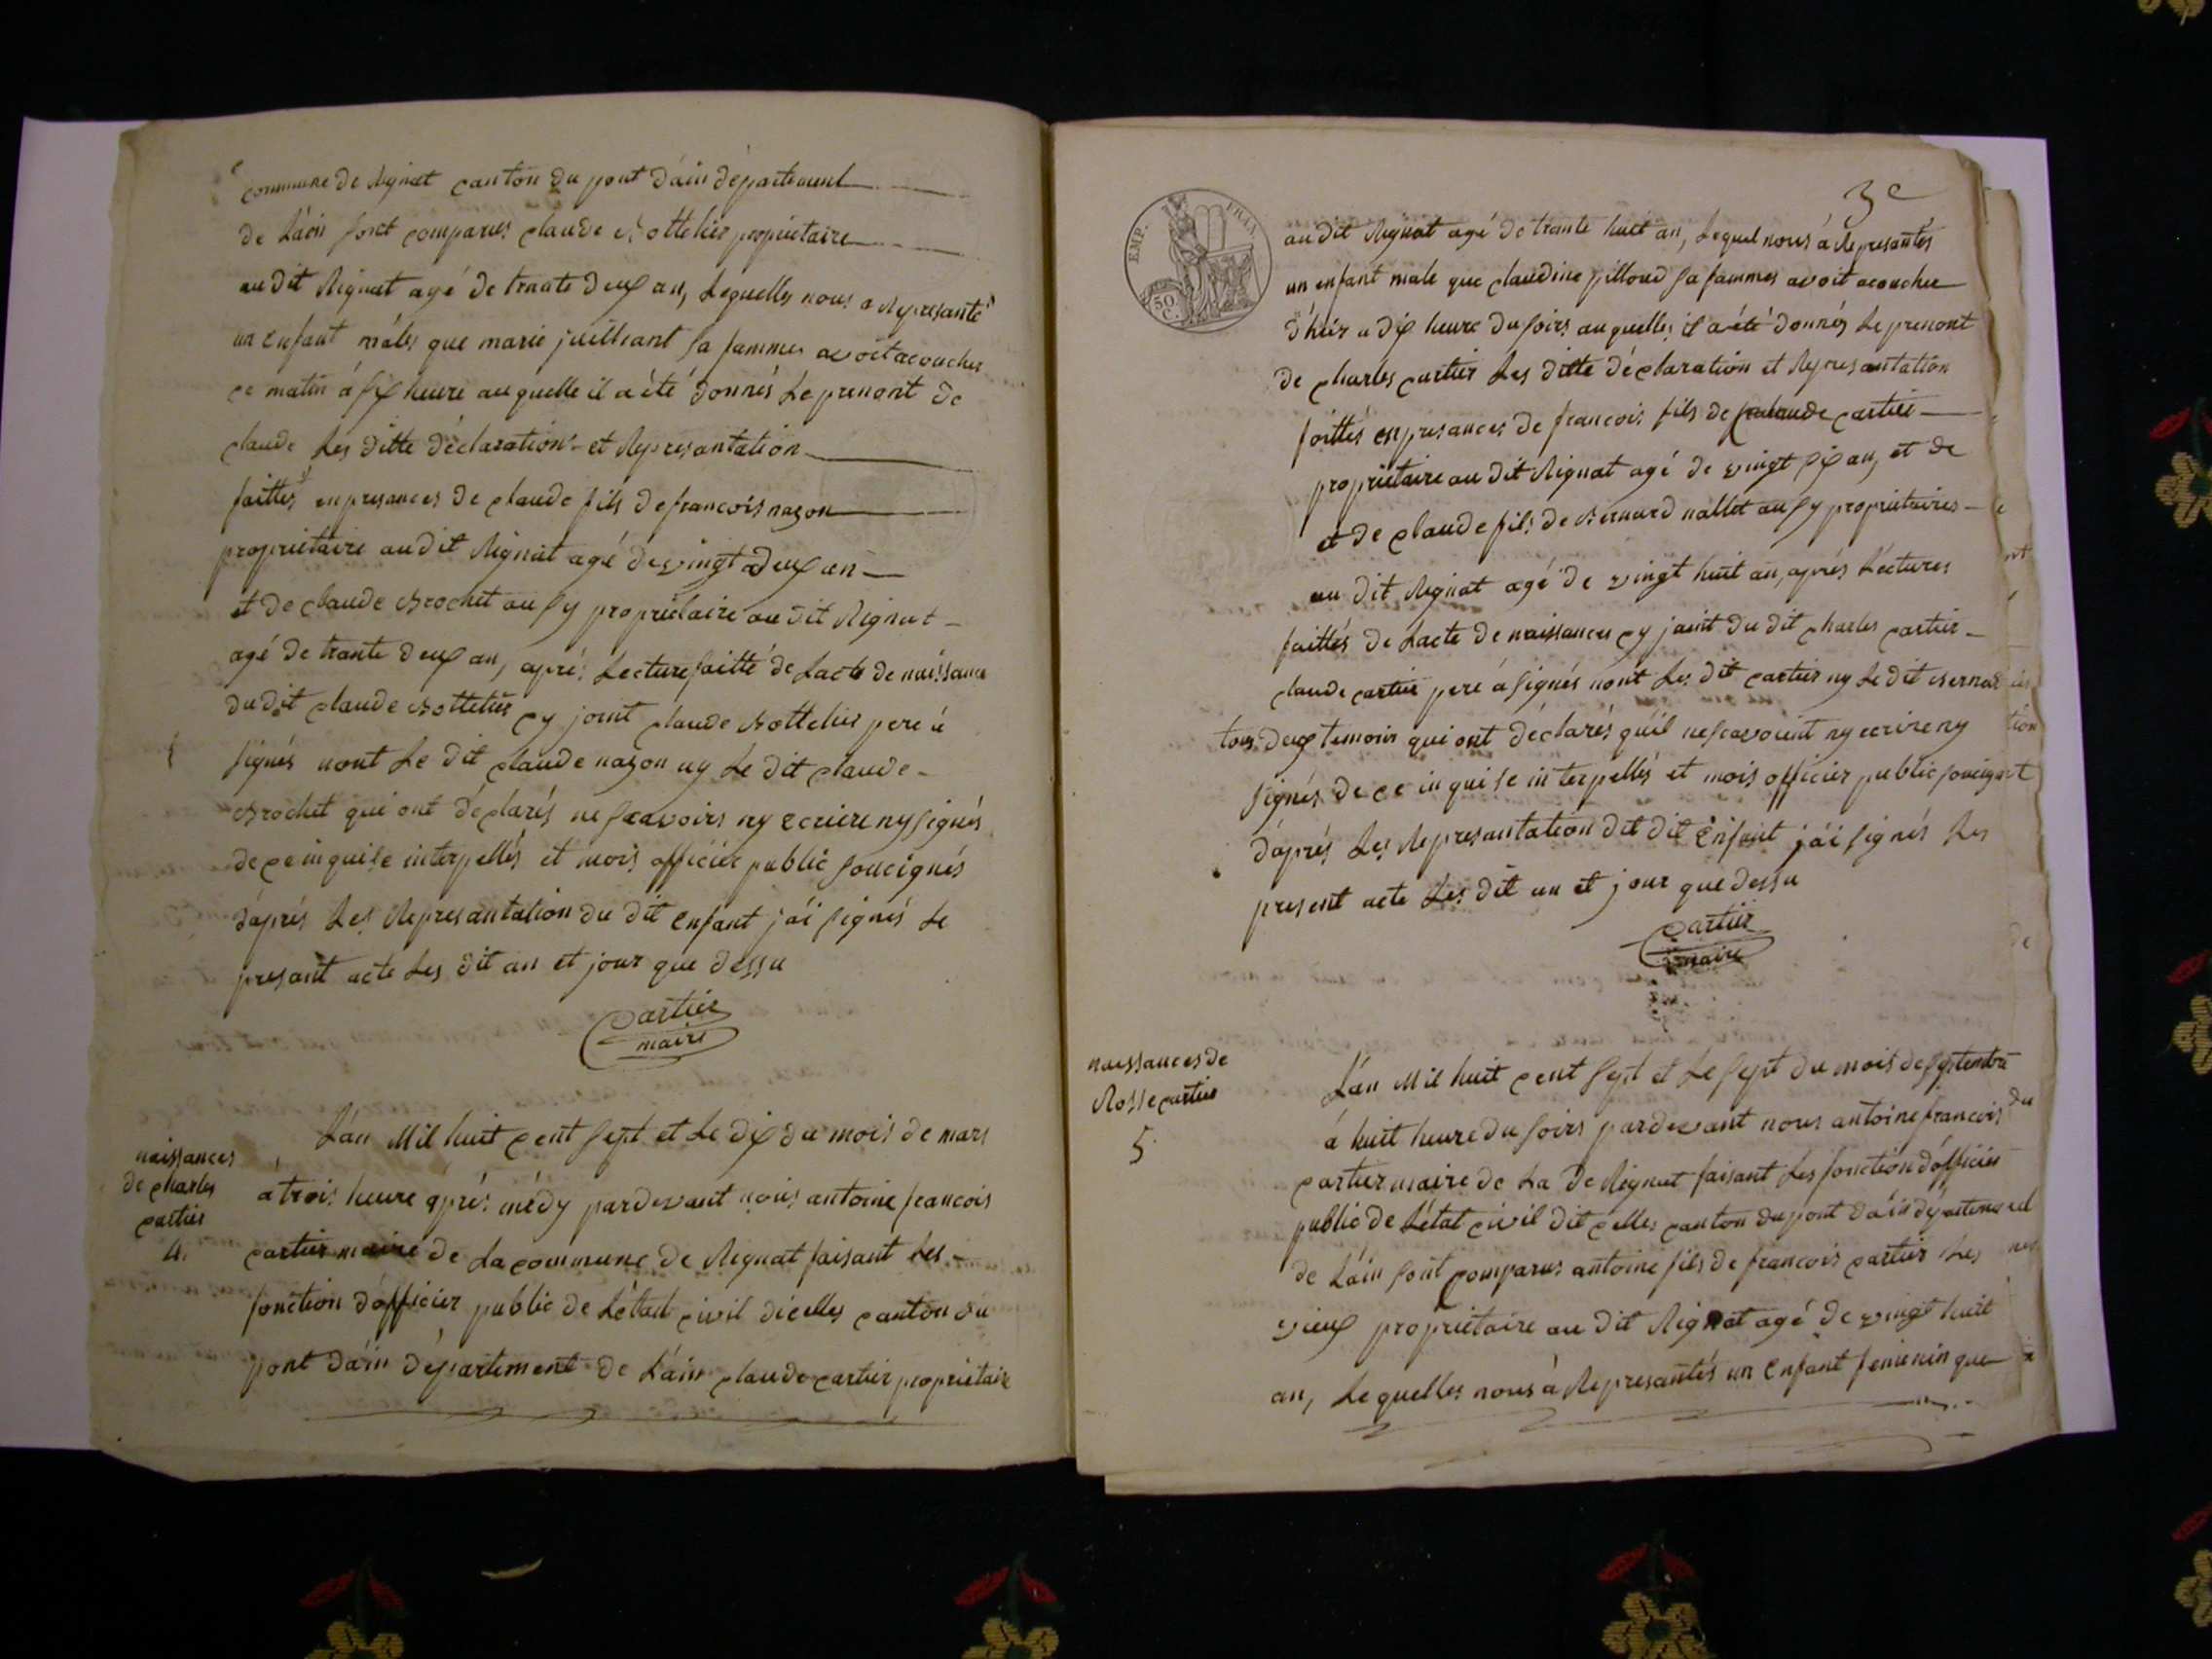 commune de Rignat canton du pont d'ain département
de L'ain sont comparus claude Bottelier propriétaire
au dit Rignat agé de trnate deux an, Lequelles nous a Represanté
un enfant mâles que marie juilleant sa fammes avoit acoucher
ce matin à six heure au quelle il a été donnés Le prenont de
claude Les ditte déclaration et Represantation
faittes en presances de claude fils de francois nazon
propriétaire au dit Rignat agé de vingt deux an
et de claude Brochet ausy propriétaire au dit Rignat
agé de trante deux an, aprés Lecture faitte de Lacte de naissance
du dit claude Bottelier cy joint claude Bottelier pere à
signés nont Le dit claude nazon ny Le dit claude
Brochet qui ont déclarés ne scavoirs ny ecriere ny signés
de ce inquise interpellés et mois officier public soucignés
d'aprés Les Represantation du dit enfant j'ái signés Le
presant acte Les dit an et jour que dessu
Cartier
maire
naissances
de charles
cartier
4.
L'an Mil huit cent sept et Le dix du mois de mars
à trois heure aprés médy pardevant nous antoine francois
cartier maire de La commune de Rignat faisant Les
fonction d'officier public de L'état civil dicelles canton du
pont d'ain département de L'ain claude cartier propriétaire
3e
EMP. FRAN.
50 C.
au dit Rignat agé de trante huit an, Lequel nous à Represantés
un enfant male que claudine pilloud sa fammes avoit acoucher
d'hier a dix heure du soirs au quelles il a été donnés Le prenont
de charles cartier Les ditte déclaration et Represantation
faittés en presances de francois fils de claude cartier
propriétaire au dit Rignat agé de vingt six an, et de
et de claude fils de Bernard nallet ausy propriétaires
au dit Rignat agé de vingt huit an, aprés Léctures
faittés de Lacte de naissances cy joint du dit charles cartier
claude cartier peré à signés nont Les dit cartier ny Le dit Bernar
tous deux temoins qui ont déclarés qu'il ne scavoient ny ecrire ny
signés de ce inquise interpellés et mois officier public soucignet
d'aprés Les Represantation dit dit Enfant j'ái signés Les
present acte Les dit an et jour que dessu
Cartier
maire
naissances de
Rosse cartier
5.
L'an Mil huit cent sept et Le sept du mois de septembre
à huit heure du soirs pardevant nous antoine francois du
cartier maire de La de Rignat faisant Les fonction d'officier
public de L'état civil dit celles canton du pont d'ain département
de L'ain sont comparus antoine fils de francois cartier Les
vieux propriétaire au dit Rignat agé de vingt huit
an, Lequelles nous à Represantés un Enfant femenin que